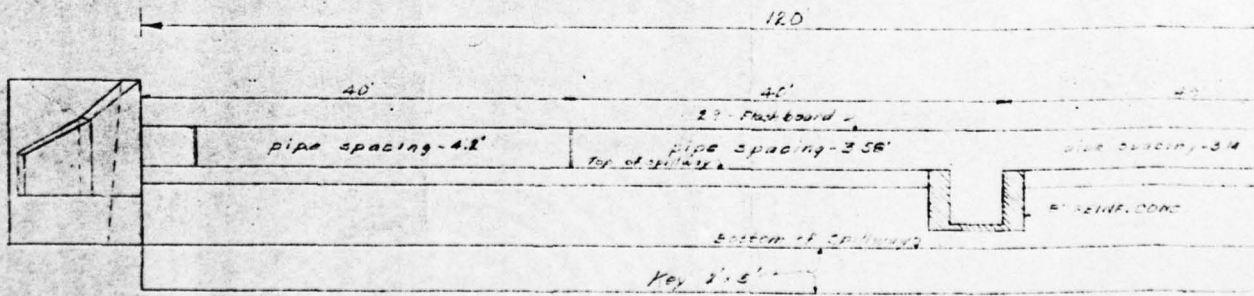 120'
40'
40'
29 - Flashboard
pipe spacing - 4.2'
pipe spacing - 3.56'
pipe spacing - 3.14
Top of spillway
REINF. CONC
Bottom of Spillway
Key 2' x 5'